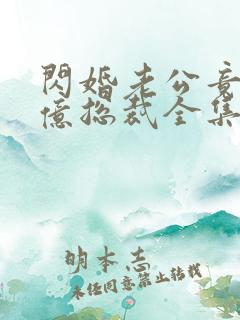 閃婚老公竟
億總裁全集
明本志
未经同意禁止转载